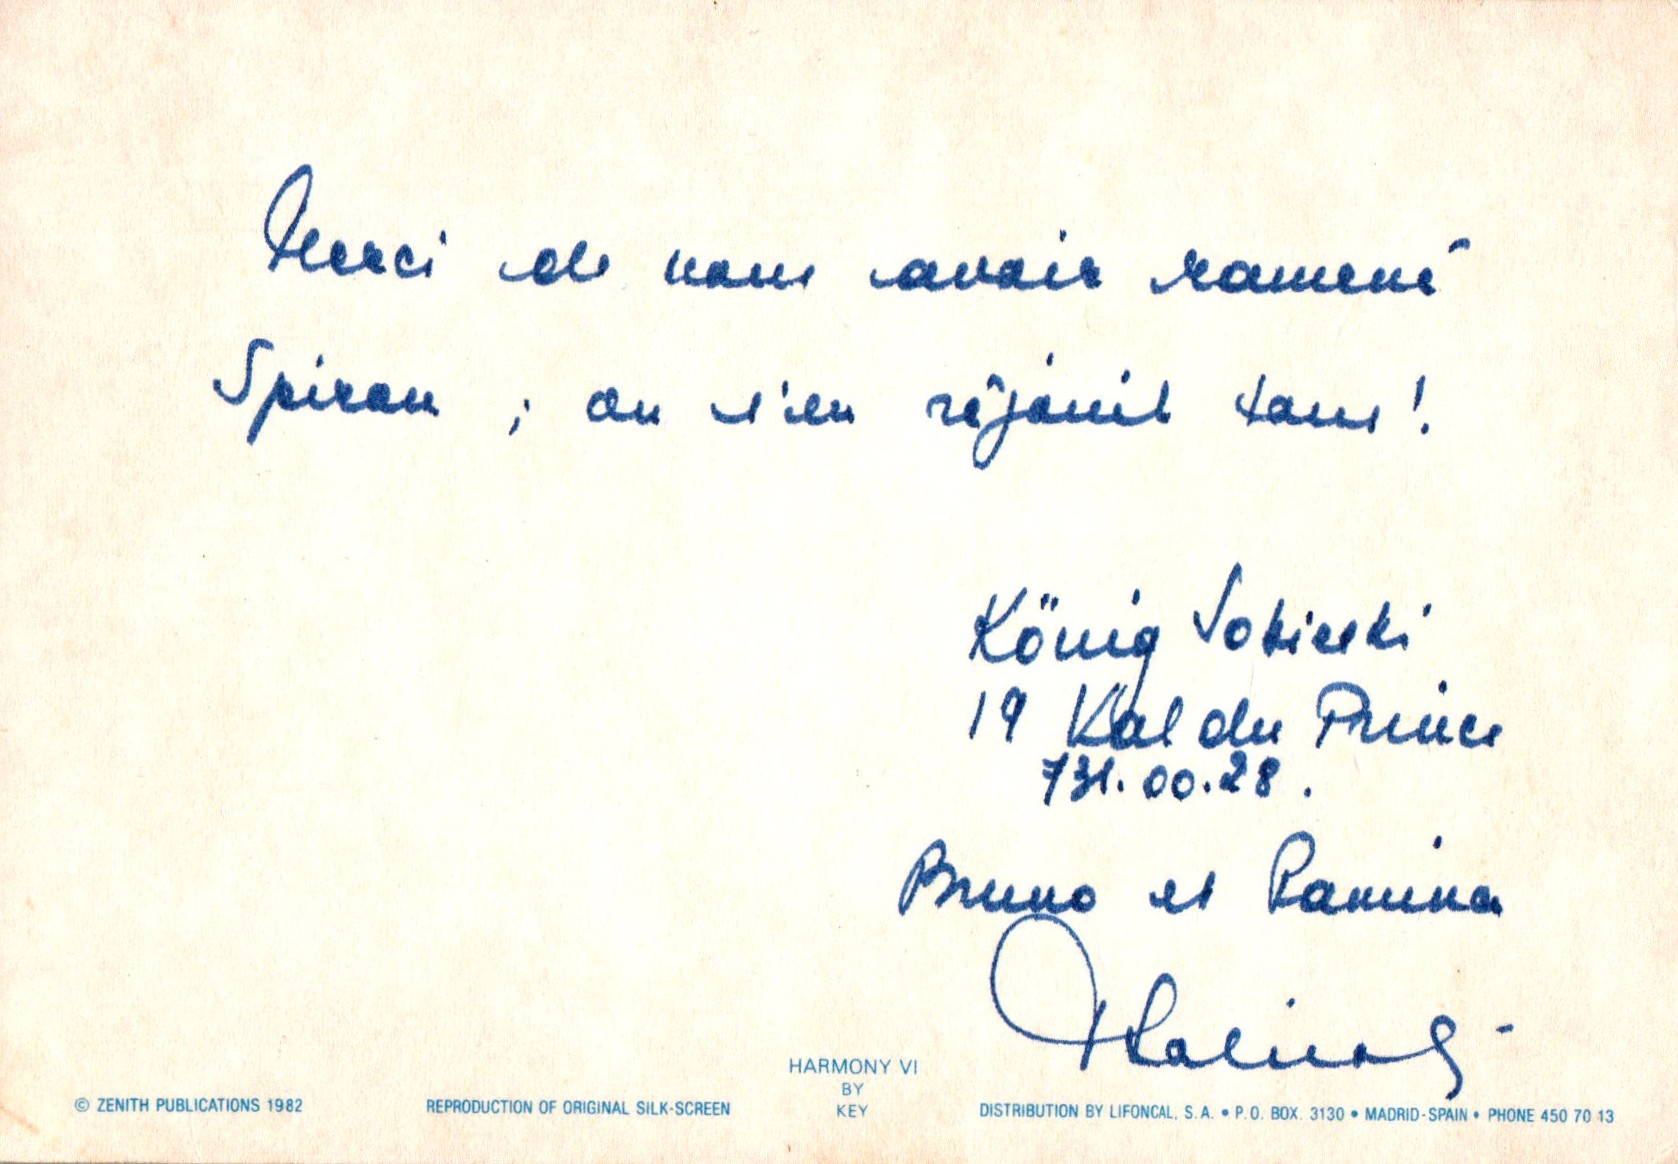 Merci de nous avoir ramené
Spirou ; on s'en réjouit tous !
König Sobieski
19 Val du Prince
731.00.28.
Bruno et Pamina
HARMONY VI
BY
KEY
© ZENITH PUBLICATIONS 1982
REPRODUCTION OF ORIGINAL SILK-SCREEN
DISTRIBUTION BY LIFONCAL, S.A. • P.O. BOX. 3130 • MADRID-SPAIN • PHONE 450 70 13